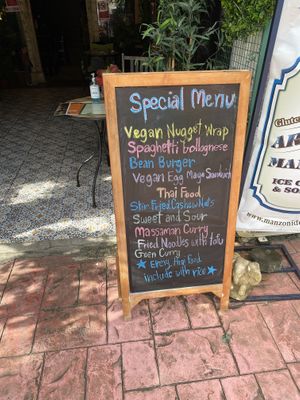 Special Menu
Vegan Nugget Wrap
Spaghetti bollognese
Bean Burger
Vegan Egg Mayo Sandwich
Thai Food
Stir Fried Cashew Nuts
Sweet and Sour
Massaman Curry
Fried Noodles with tofu
Green Curry
Every Thai Food
include with rice
Glute
AR
MAN
ICE C
& SO
www.manzonide